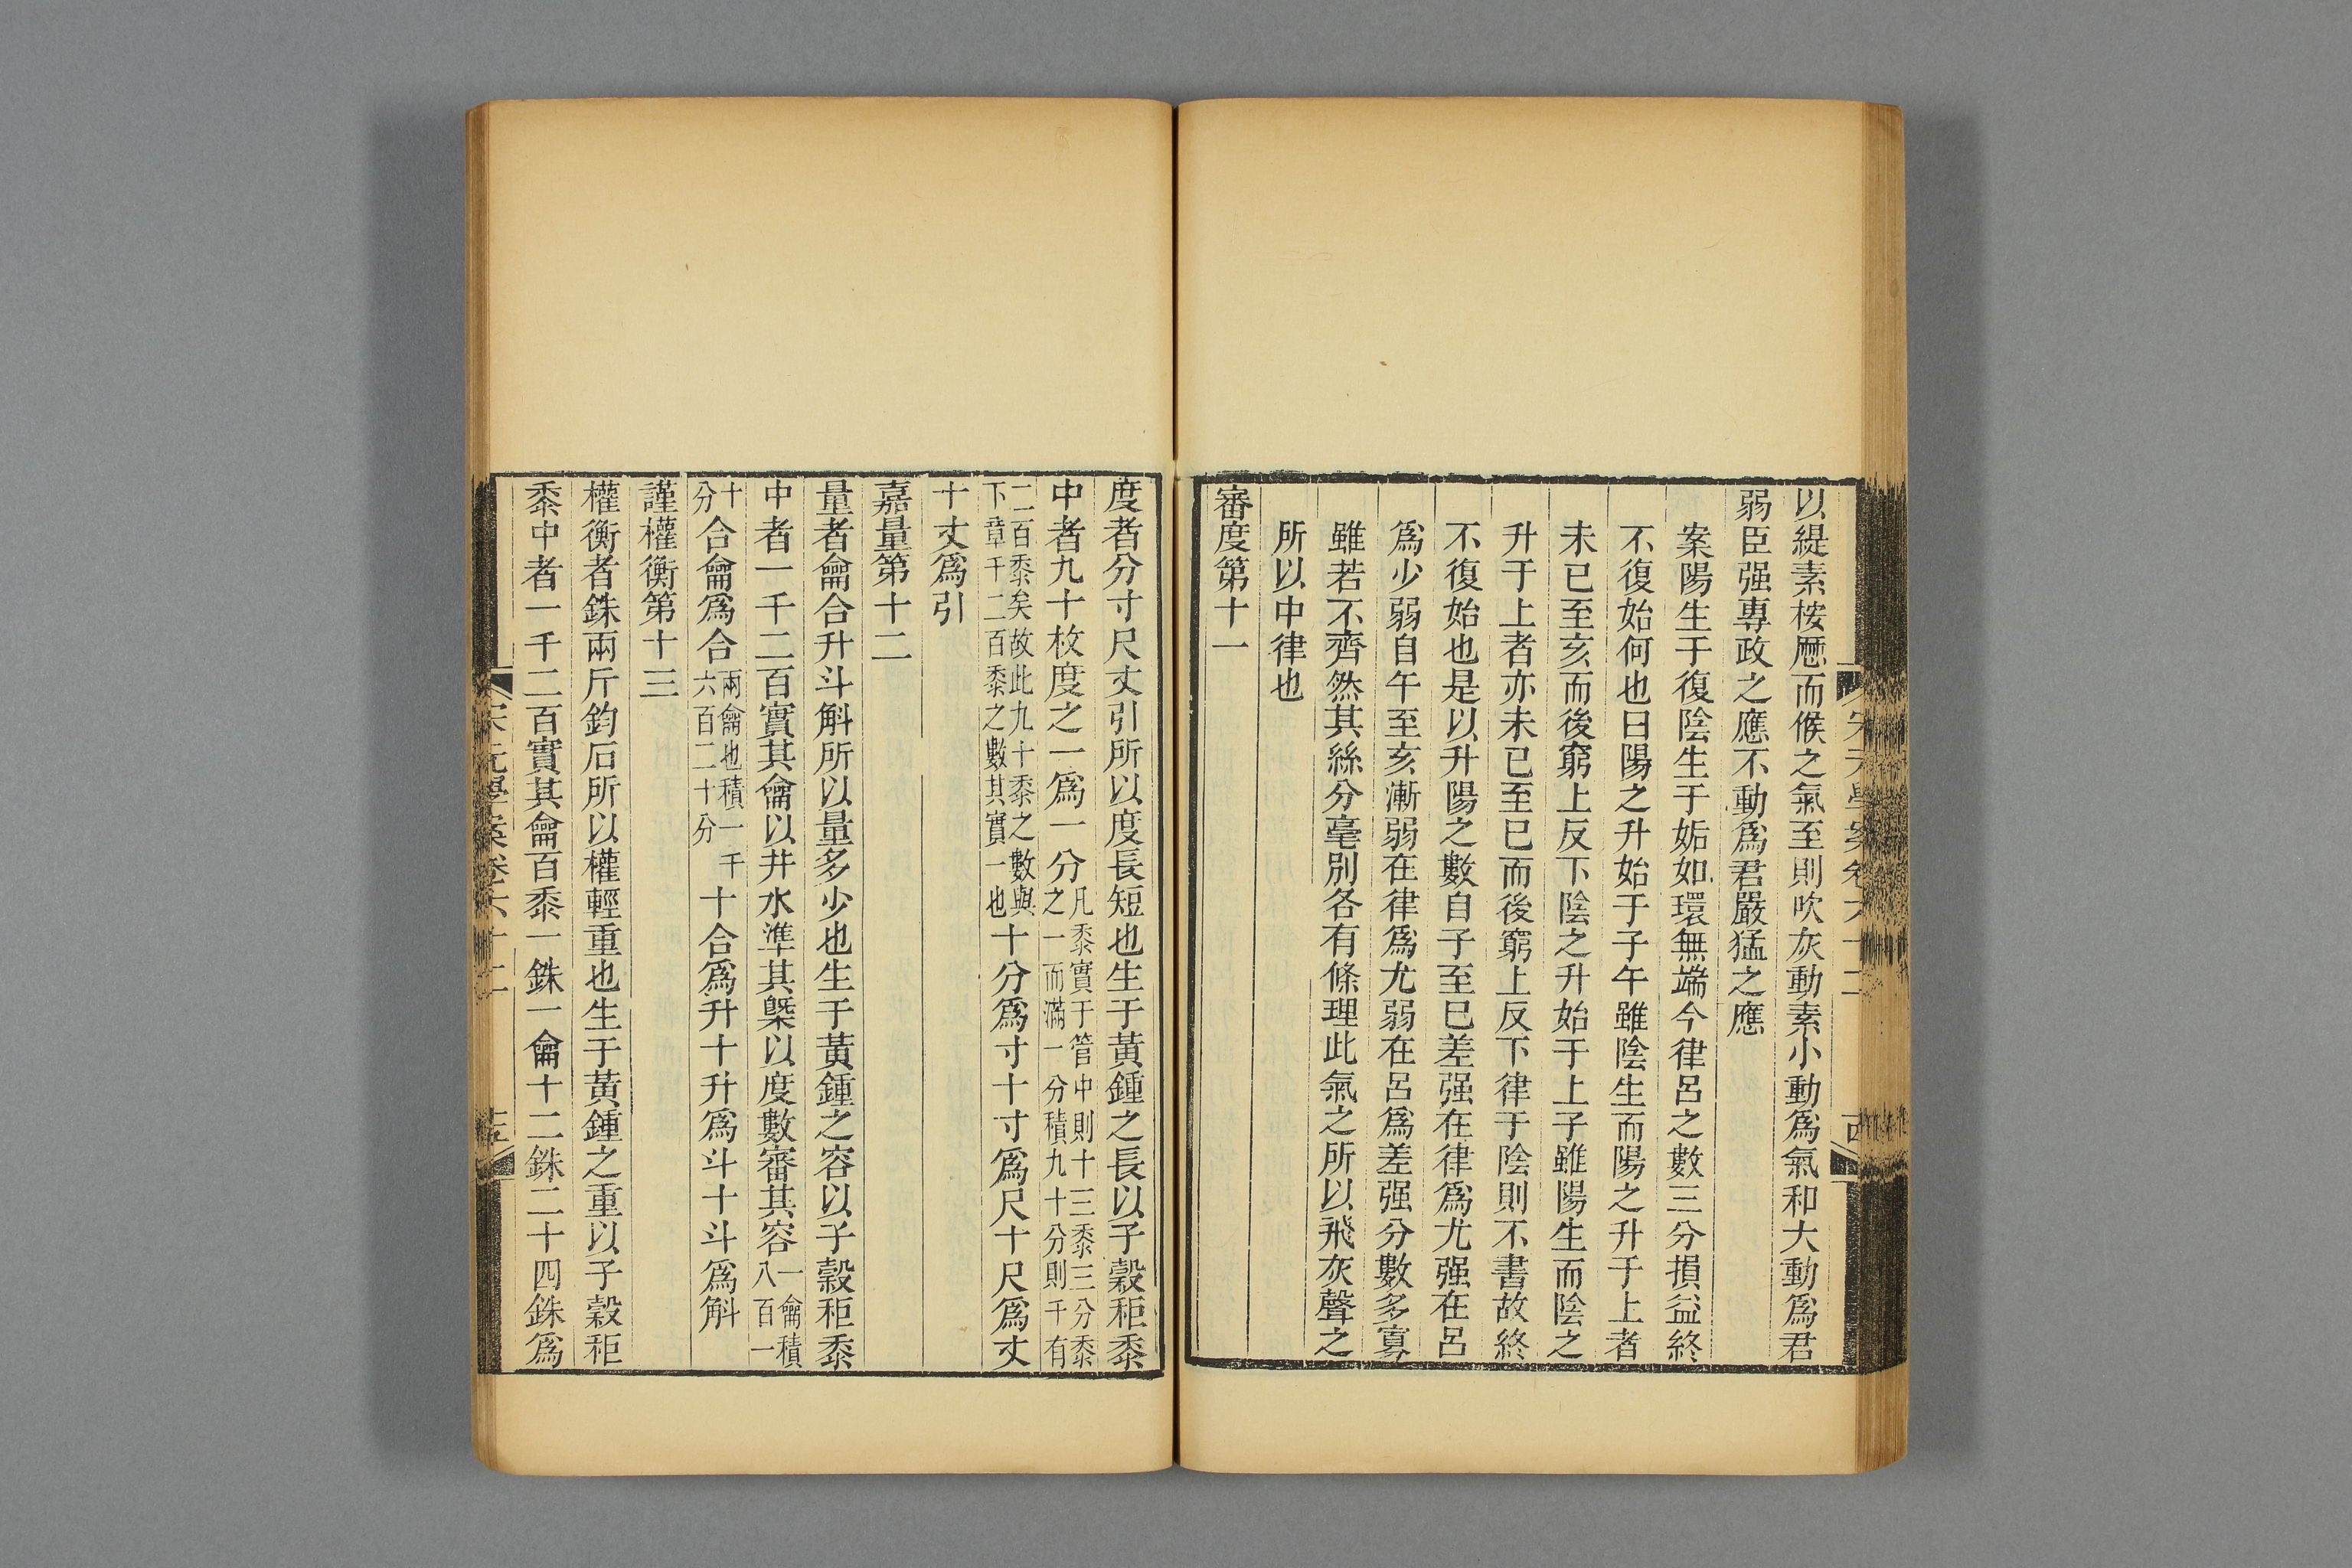 以緹素桉厯而候之氣至則吹灰動素小動爲氣和大動爲君
弱臣强專政之應不動爲君嚴猛之應
案陽生于復陰生于姤如環無端今律呂之數三分損益終
不復始何也曰陽之升始于子午雖陰生而陽之升于上者
未已至亥而後窮上反下陰之升始于上子雖陽生而陰之
升于上者亦未已至巳而後窮上反下律于陰則不書故終
不復始也是以升陽之數自子至巳差强在律爲尤强在呂
爲少弱自午至亥漸弱在律爲尤弱在呂爲差强分數多寡
雖若不齊然其絲分毫別各有條理此氣之所以飛灰聲之
所以中律也
審度第十一
度者分寸尺丈引所以度長短也生于黃鍾之長以子穀秬黍
中者九十枚度之一爲一分凡黍實于管中則十三黍三分黍之一而滿一分積九十分則千有
二百黍矣故此九十黍之數與下章千二百黍之數其實一也十分爲寸十寸爲尺十尺爲丈
十丈爲引
嘉量第十二
量者龠合升斗斛所以量多少也生于黃鍾之容以子穀秬黍
中者一千二百實其龠以井水準其槩以度數審其容一龠積八百一
十分合龠爲合兩龠也積一千六百二十分十合爲升十升爲斗十斗爲斛
謹權衡第十三
權衡者銖兩斤鈞石所以權輕重也生于黃鍾之重以子穀秬
黍中者一千二百實其龠百黍一銖一龠十二銖二十四銖爲
宋元學案卷六十二